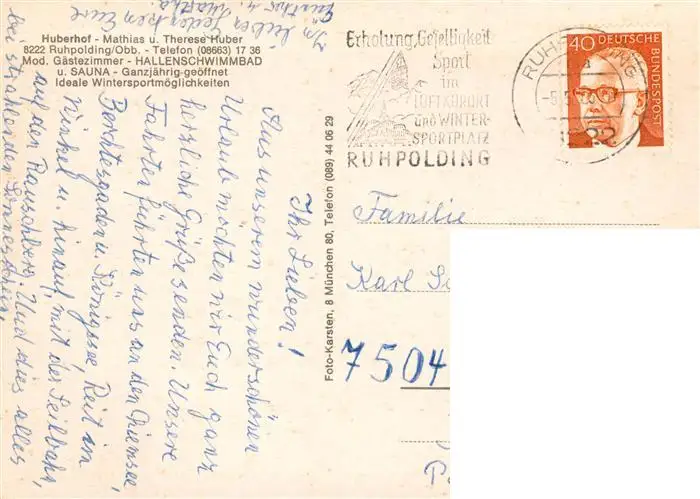 Huberhof - Mathias u. Therese Huber
8222 Ruhpolding/Obb. - Telefon (08663) 17 36
Mod. Gästezimmer - HALLENSCHWIMMBAD
u. SAUNA - Ganzjährig geöffnet
Ideale Wintersportmöglichkeiten
Ihr Lieben!
Aus unserem wunderschönen
Urlaub möchten wir Euch ganz
herzliche Grüße senden. Unsere
Fahrten führten uns an den Chiemsee,
Berchtesgaden u. Königssee, Reit im
Winkel u. hinauf, mit der Seilbahn,
auf den Rauschberg. Und dies alles
bei strahlenden Sonnenschein.
In lieben Gedenken Eure
Foto-Karsten, 8 München 80, Telefon (089) 44 06 29
Erholung, Geselligkeit
Sport
im
LUFTKURORT
und WINTER-
SPORTPLATZ
RUHPOLDING
RUHPOLDING
40 DEUTSCHE
BUNDESPOST
Familie
Karl
7504